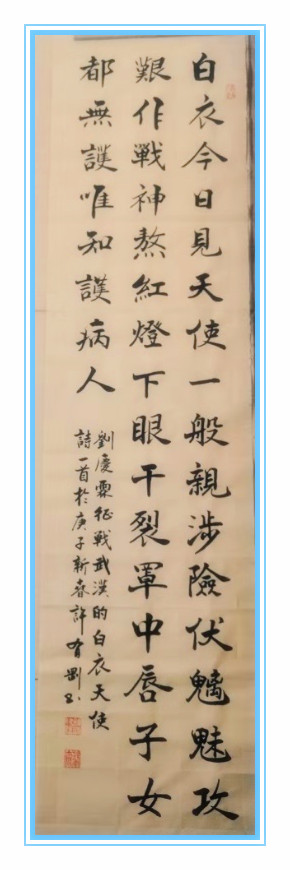 白衣今日見天使一般親涉險伏魑魅攻
艱作戰神熬紅燈下眼干裂罩中唇子女
都無護唯知護病人
劉慶霖征戰武漢的白衣天使
詩一首於庚子新春許有剛書